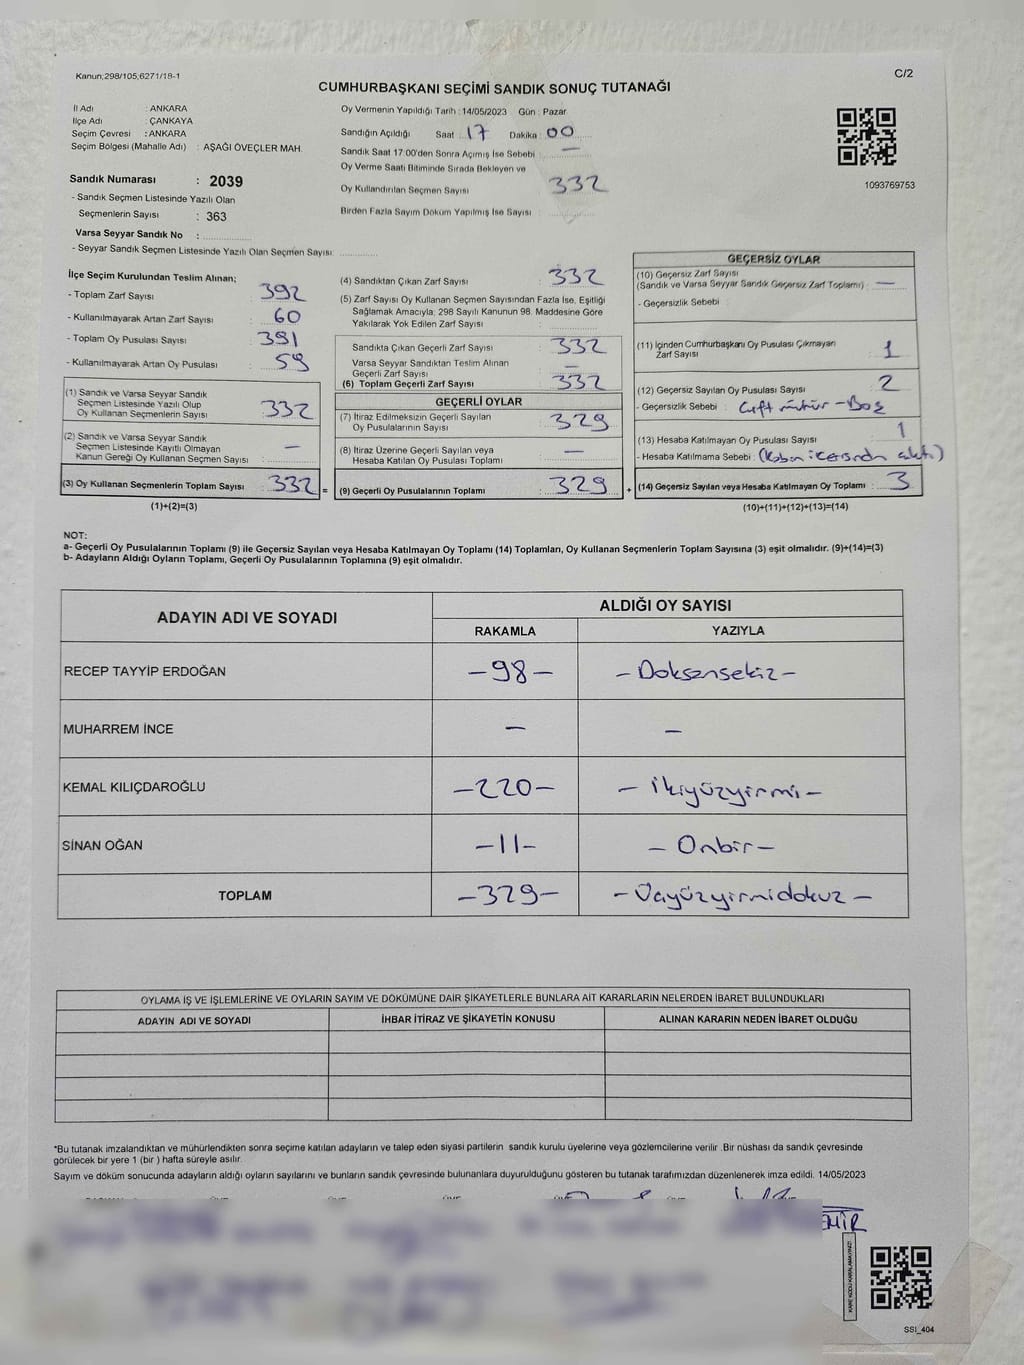 Kanun;298/105;6271/18-1
C/2
CUMHURBAŞKANI SEÇİMİ SANDIK SONUÇ TUTANAĞI
İl Adı : ANKARA
İlçe Adı : ÇANKAYA
Seçim Çevresi : ANKARA
Seçim Bölgesi (Mahalle Adı) : AŞAĞI ÖVEÇLER MAH.
Sandık Numarası : 2039
- Sandık Seçmen Listesinde Yazılı Olan
Seçmenlerin Sayısı : 363
Varsa Seyyar Sandık No :
- Seyyar Sandık Seçmen Listesinde Yazılı Olan Seçmen Sayısı:
Oy Vermenin Yapıldığı Tarih : 14/05/2023 Gün : Pazar
Sandığın Açıldığı Saat : 17 Dakika : 00
Sandık Saat 17:00'den Sonra Açımış İse Sebebi : —
Oy Verme Saati Bitiminde Sırada Bekleyen ve
Oy Kullandırılan Seçmen Sayısı 332
Birden Fazla Sayım Döküm Yapılmış İse Sayısı :
1093769753
İlçe Seçim Kurulundan Teslim Alınan;
- Toplam Zarf Sayısı : 392
- Kullanılmayarak Artan Zarf Sayısı : 60
- Toplam Oy Pusulası Sayısı : 391
- Kullanılmayarak Artan Oy Pusulası : 59
(1) Sandık ve Varsa Seyyar Sandık
Seçmen Listesinde Yazılı Olup
Oy Kullanan Seçmenlerin Sayısı : 332
(2) Sandık ve Varsa Seyyar Sandık
Seçmen Listesinde Kayıtlı Olmayan
Kanun Gereği Oy Kullanan Seçmen Sayısı : —
(3) Oy Kullanan Seçmenlerin Toplam Sayısı : 332 =
(1)+(2)=(3)
(4) Sandıktan Çıkan Zarf Sayısı : 332
(5) Zarf Sayısı Oy Kullanan Seçmen Sayısından Fazla İse, Eşitliği
Sağlamak Amacıyla; 298 Sayılı Kanunun 98. Maddesine Göre
Yakılarak Yok Edilen Zarf Sayısı :
Sandıkta Çıkan Geçerli Zarf Sayısı : 332
Varsa Seyyar Sandıktan Teslim Alınan
Geçerli Zarf Sayısı : —
(6) Toplam Geçerli Zarf Sayısı : 332
GEÇERLİ OYLAR
(7) İtiraz Edilmeksizin Geçerli Sayılan
Oy Pusulalarının Sayısı : 329
(8) İtiraz Üzerine Geçerli Sayılan veya
Hesaba Katılan Oy Pusulası Toplamı : —
(9) Geçerli Oy Pusulalarının Toplamı : 329 +
GEÇERSİZ OYLAR
(10) Geçersiz Zarf Sayısı
(Sandık ve Varsa Seyyar Sandık Geçersiz Zarf Toplamı) : —
- Geçersizlik Sebebi :
(11) İçinden Cumhurbaşkanı Oy Pusulası Çıkmayan
Zarf Sayısı : 1
(12) Geçersiz Sayılan Oy Pusulası Sayısı : 2
- Geçersizlik Sebebi : Çift mühür - Boş
(13) Hesaba Katılmayan Oy Pusulası Sayısı : 1
- Hesaba Katılmama Sebebi : (Kabin içersinden
(14) Geçersiz Sayılan veya Hesaba Katılmayan Oy Toplamı : 3
(10)+(11)+(12)+(13)=(14)
NOT:
a- Geçerli Oy Pusulalarının Toplamı (9) ile Geçersiz Sayılan veya Hesaba Katılmayan Oy Toplamı (14) Toplamları, Oy Kullanan Seçmenlerin Toplam Sayısına (3) eşit olmalıdır. (9)+(14)=(3)
b- Adayların Aldığı Oyların Toplamı, Geçerli Oy Pusulalarının Toplamına (9) eşit olmalıdır.
ADAYIN ADI VE SOYADI
ALDIĞI OY SAYISI
RAKAMLA YAZIYLA
RECEP TAYYİP ERDOĞAN -98- -Doksansekiz-
MUHARREM İNCE - -
KEMAL KILIÇDAROĞLU -220- -İkiyüzyirmi-
SİNAN OĞAN -11- -Onbir-
TOPLAM -329- -Üçyüzyirmidokuz-
OYLAMA İŞ VE İŞLEMLERİNE VE OYLARIN SAYIM VE DÖKÜMÜNE DAİR ŞİKAYETLERLE BUNLARA AİT KARARLARIN NELERDEN İBARET BULUNDUKLARI
ADAYIN ADI VE SOYADI İHBAR İTİRAZ VE ŞİKAYETİN KONUSU ALINAN KARARIN NEDEN İBARET OLDUĞU
*Bu tutanak imzalandıktan ve mühürlendikten sonra seçime katılan adayların ve talep eden siyasi partilerin sandık kurulu üyelerine veya gözlemcilerine verilir .Bir nüshası da sandık çevresinde
görülecek bir yere 1 (bir ) hafta süreyle asılır.
Sayım ve döküm sonucunda adayların aldığı oyların sayılarını ve bunların sandık çevresinde bulunanlara duyurulduğunu gösteren bu tutanak tarafımızdan düzenlenerek imza edildi. 14/05/2023
KARE KODU KARALAMAYINIZ!
SSI_404